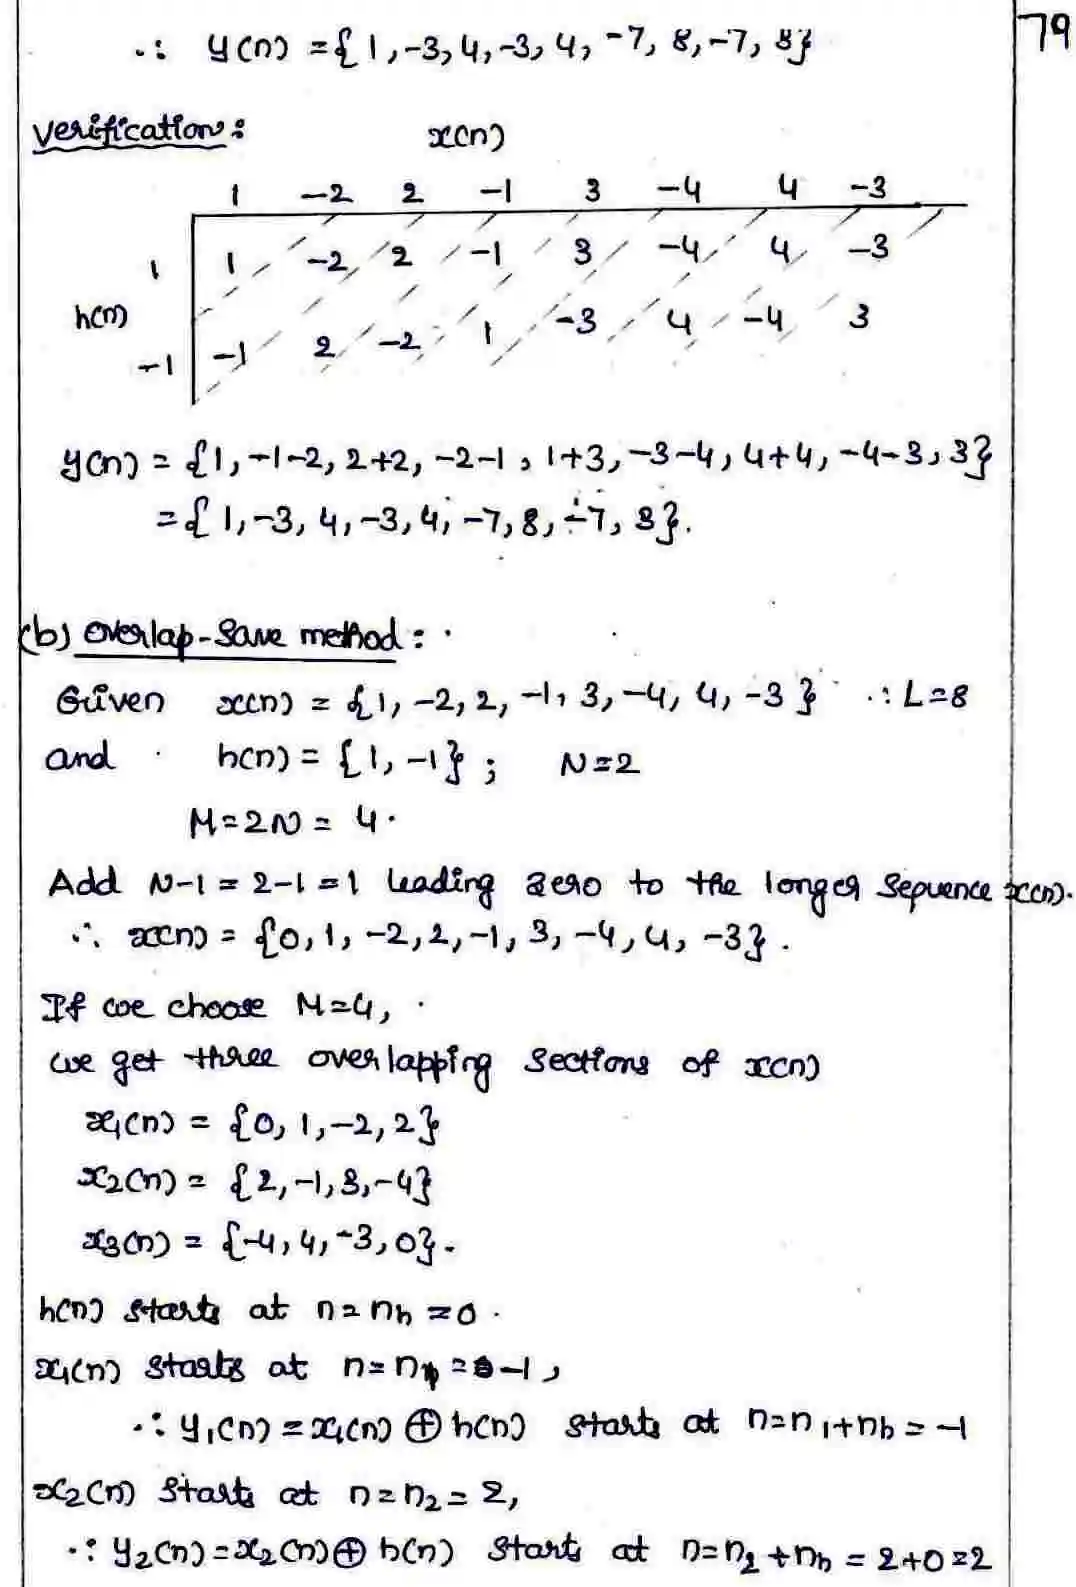 79
∴ y(n) = {1, -3, 4, -3, 4, -7, 8, -7, 3}
Verification:
x(n)
1 -2 2 -1 3 -4 4 -3
1 1 -2 2 -1 3 -4 4 -3
h(n)
-1 -1 2 -2 1 -3 4 -4 3
y(n) = {1, -1-2, 2+2, -2-1, 1+3, -3-4, 4+4, -4-3, 3}
= {1, -3, 4, -3, 4, -7, 8, -7, 3}.
(b) Overlap-Save method:
Given x(n) = {1, -2, 2, -1, 3, -4, 4, -3} ∴ L=8
and h(n) = {1, -1}; N=2
M=2N = 4.
Add N-1 = 2-1 = 1 leading zero to the longer sequence x(n).
∴ x(n) = {0, 1, -2, 2, -1, 3, -4, 4, -3}.
If we choose M=4,
we get three overlapping sections of x(n)
x₁(n) = {0, 1, -2, 2}
x₂(n) = {2, -1, 3, -4}
x₃(n) = {-4, 4, -3, 0}.
h(n) starts at n = nₕ = 0.
x₁(n) starts at n = n₁ = -1,
∴ y₁(n) = x₁(n) ⊕ h(n) starts at n = n₁+nₕ = -1
x₂(n) starts at n = n₂ = 2,
∴ y₂(n) = x₂(n) ⊕ h(n) starts at n = n₂ + nₕ = 2+0 = 2